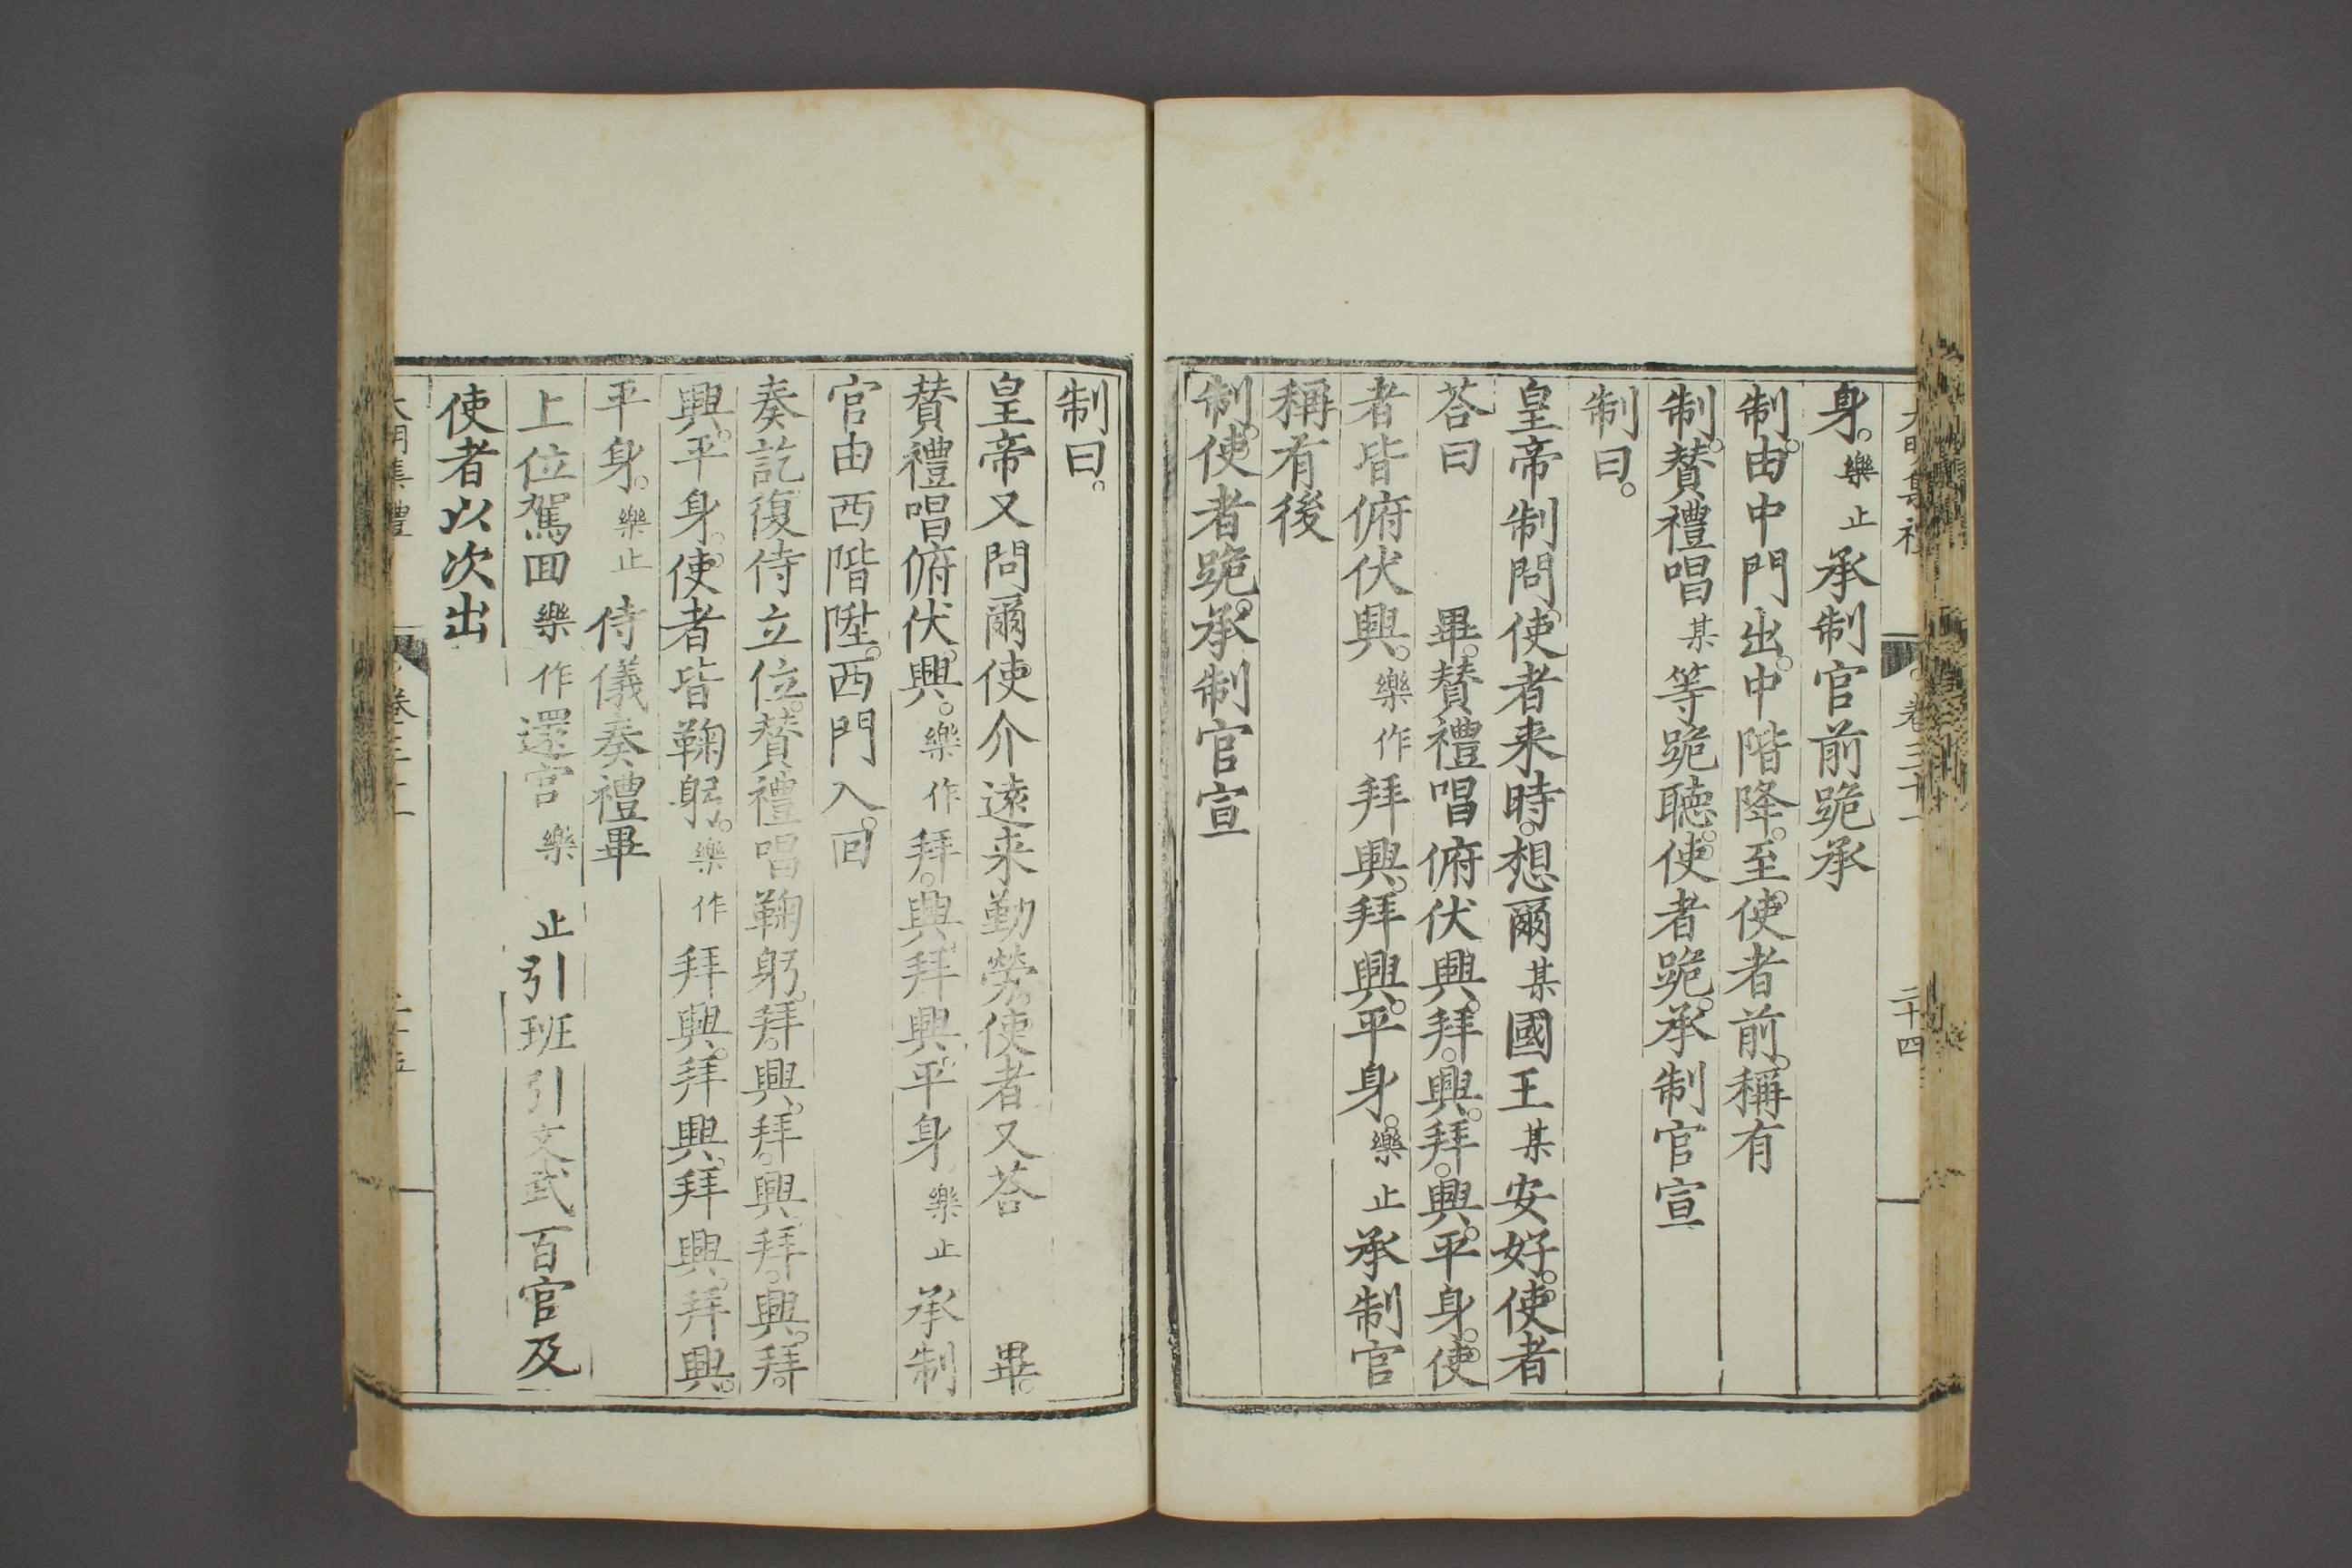 身。樂止承制官前跪承
制。由中門出。中階降。至使者前。稱有
制。贊禮唱某等跪聽。使者跪。承制官宣
制曰。
皇帝制問。使者来時。想爾某國王某安好。使者
荅曰　畢。贊禮唱俯伏興。拜。興。拜。興。平身。使
者皆俯伏興。樂作拜興。拜興。平身。樂止承制官
稱有後
制。使者跪。承制官宣
制曰。
皇帝又問爾使介遠来勤勞。使者又荅　畢。
賛禮唱俯伏。興。樂作拜。興。拜興。平身樂止承制
官由西階陞。西門入。回
奏訖復侍立位。賛禮唱鞠躬。拜。興。拜。興。拜。興。拜。
興。平身。使者皆鞠躬。樂作拜興。拜興。拜興。拜興。
平身。樂止侍儀奏禮畢
上位駕囬樂作還宮樂止引班引文武百官及
使者以次出